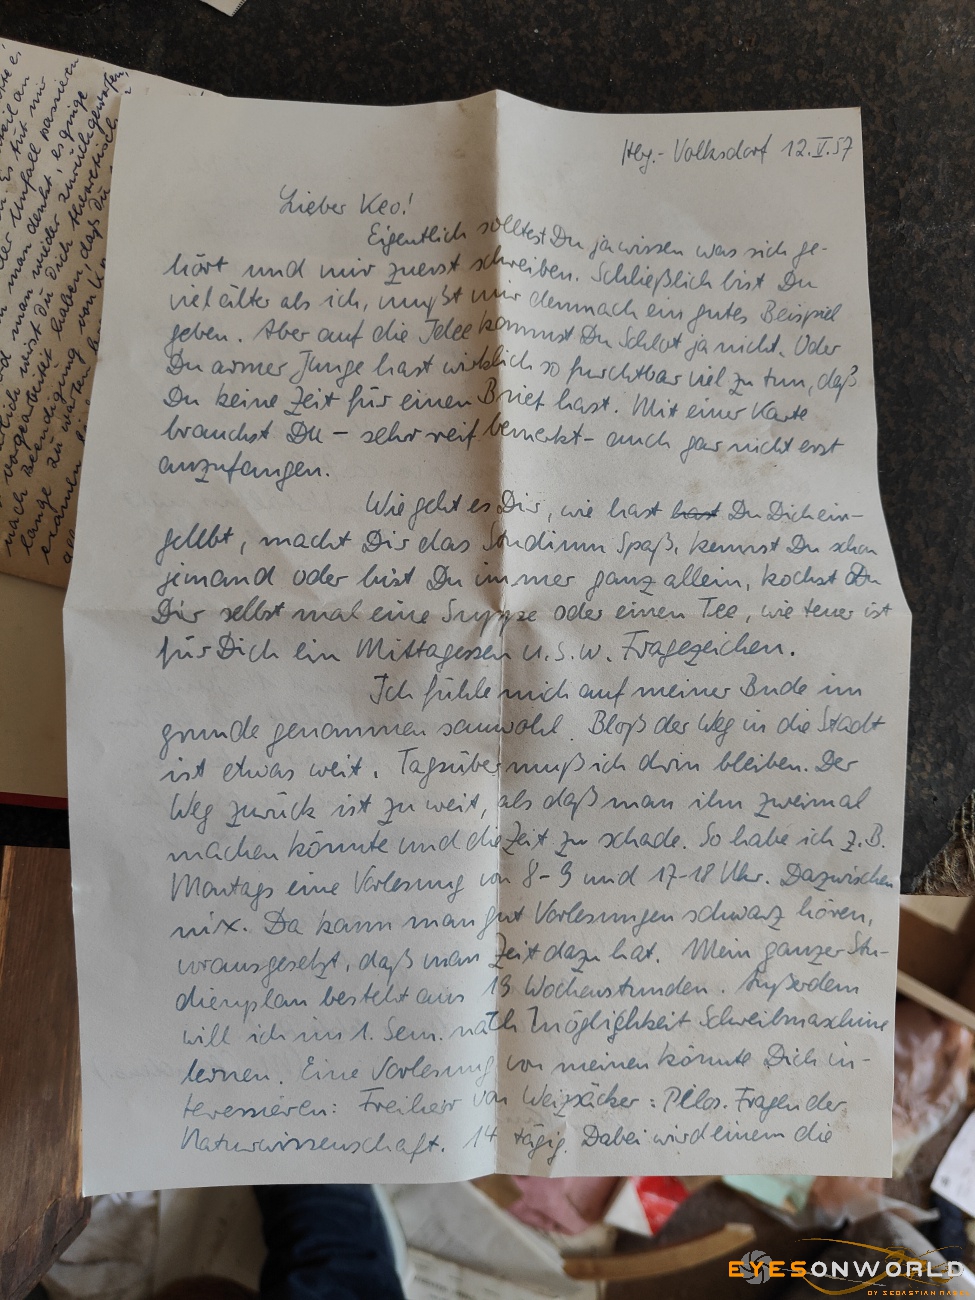 Hbg.- Volksdorf 12.V.57
Lieber Keo!
Eigentlich solltest Du ja wissen was sich ge-
hört und mir zuerst schreiben. Schließlich bist Du
viel älter als ich, mußt mir demnach ein gutes Beispiel
geben. Aber auf die Idee kommst Du Schlot ja nicht. Oder
Du armer Junge hast wirklich so furchtbar viel zu tun, daß
Du keine Zeit für einen Brief hast. Mit einer Karte
brauchst Du - sehr reif bemerkt - auch gar nicht erst
anzufangen.
Wie geht es Dir, wie hast hast Du Dich ein-
gelebt, macht Dir das Studium Spaß, kennst Du schon
jemand oder bist Du immer ganz allein, kochst Du
Dir selbst mal eine Suppe oder einen Tee, wie teuer ist
für Dich ein Mittagessen u.s.w. Fragezeichen.
Ich fühle mich auf meiner Bude im
grunde genommen sauwohl. Bloß der Weg in die Stadt
ist etwas weit. Tagsüber muß ich drin bleiben. Der
Weg zurück ist zu weit, als daß man ihn zweimal
machen könnte und die Zeit zu schade. So habe ich z.B.
Montags eine Vorlesung von 8-9 und 17-18 Uhr. Dazwischen
nix. Da kann man gut Vorlesungen schwarz hören,
vorausgesetzt, daß man Zeit dazu hat. Mein ganzer Stu-
dienplan besteht aus 19 Wochenstunden. Außerdem
will ich im 1. Sem. nach Möglichkeit Schreibmaschine
lernen. Eine Vorlesung von meinen könnte Dich in-
teressieren: Freiherr von Weizsäcker: Philos. Fragen der
Naturwissenschaft. 14 tägig. Dabei wird einem die
man denkt, es ginge
wird man wieder zurückgeworfen,
wirst Du Dich theoretisch
vorgearbeitet haben, daß Du
nach Beendigung von
lange zu warten
EYESONWORLD
BY SEBASTIAN